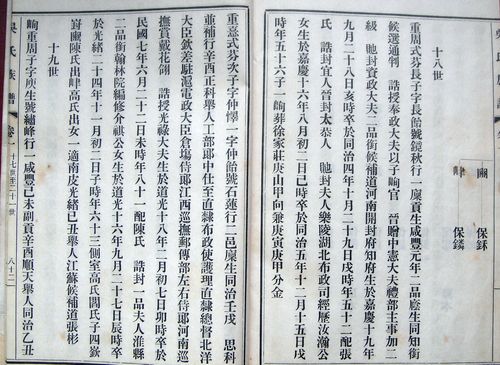 保
保鏻
十八世
重周式芬長子字長飴號鏡秋行一廩貢生咸豐元年二品廕生同知銜
候選通判 誥授奉政大夫以子峋官 晉贈中憲大夫禮部主事加二
級 貤封資政大夫二品銜候補道河南開封府知府生於嘉慶十九年
九月二十八日亥時卒於同治四年十月二十九日戌時年五十二配張
氏 誥封宜人晉封太恭人 貤封夫人樂陵湖北布政司經歷汝瀚公
女生於嘉慶十六年十一月初一日巳時卒於同治五年十二月十五日戌
時年五十六子一峋葬徐家莊庚山甲向兼庚寅庚甲分金
重憙式芬次子字仲懌一字仲飴號石蓮行二邑廩生同治壬戌 恩科
並補行辛酉正科舉人工部郎中仕至直隸布政使護理直隸總督北洋
大臣欽差駐滬電政大臣倉場侍郎江西巡撫郵傳部左右侍郎河南巡
撫賞戴花翎 誥授光祿大夫生於道光十八年二月初七日卯時卒於
民國七年六月二十二日未時年八十一配陳氏 誥封一品夫人濰縣
二品銜翰林院編修介祺公女生於道光十六年九月二十七日辰時卒
於光緒二十四年十一月初二日子時年六十三側室高氏閻氏子四崶
對䣊陳氏出峍高氏出女一適南皮光緒己丑舉人江蘇候補道張彬
十九世
峋重周子字庚生號繡峰行一咸豐己未副貢辛酉順天舉人同治乙丑
吳氏族譜 卷一 十七世至二十一世 八十二